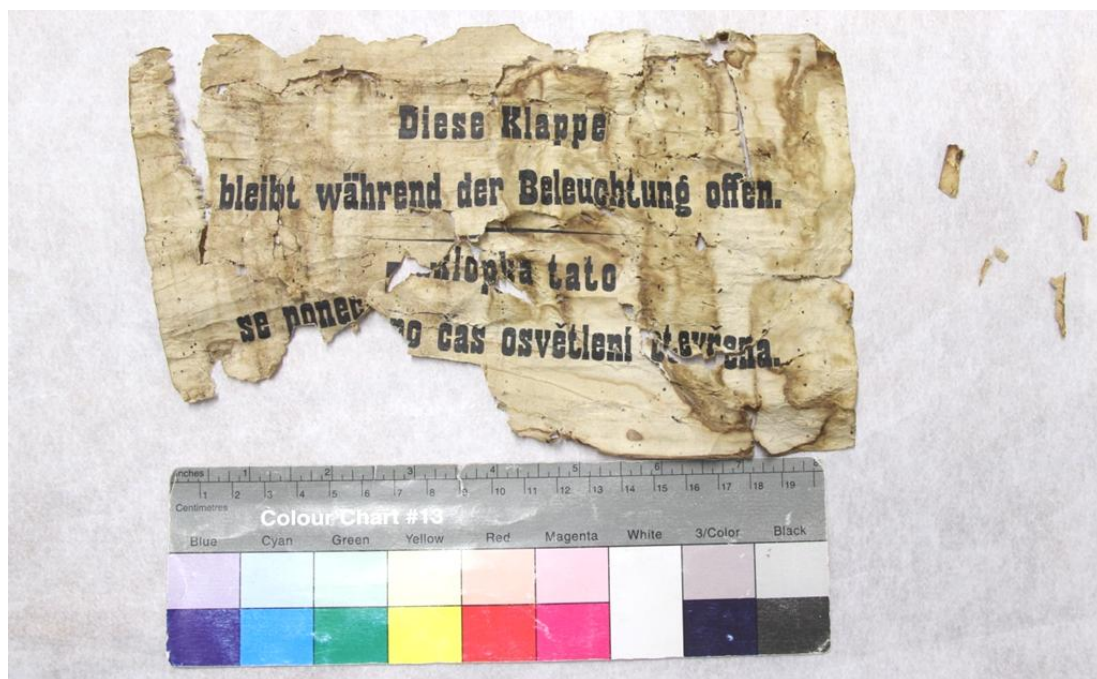 Diese Klappe
bleibt während der Beleuchtung offen.
tato
se čas osvětlení otevřená.
inches 1 2 3 4 5 6 7
1 2 3 4 5 6 7 8 9 10 11 12 13 14 15 16 17 18 19
Centimetres
Colour Chart #13
Blue Cyan Green Yellow Red Magenta White 3/Color Black